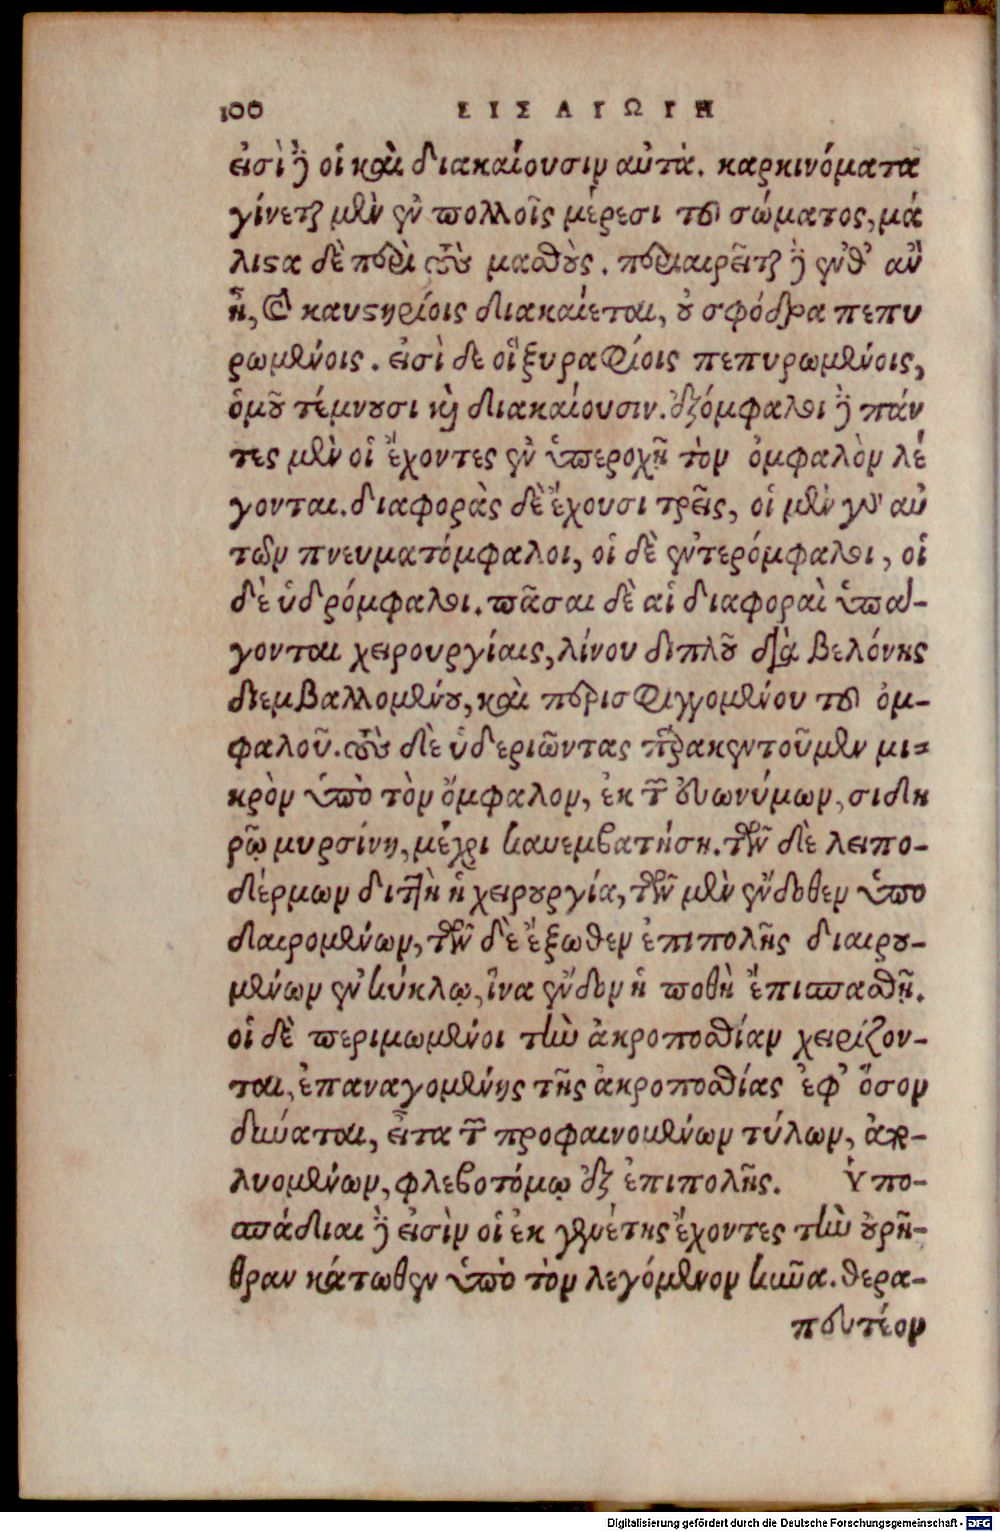 100 ΕΙΣΑΓΩΓΗ
εἰσὶ δὲ οἱ καὶ διακαίουσιν αὐτά. καρκινόματα
γίνεται μὲν ἐν πολλοῖς μέρεσι τοῦ σώματος, μά
λιστα δὲ περὶ τοὺς μασθοὺς. περιαιρεῖται δὲ ἔνθ' ἂν
ᾖ, καὶ καυστηρίοις διακαίεται, οὐ σφόδρα πεπυ
ρωμένοις. εἰσὶ δὲ οἳ ξυραφίοις πεπυρωμένοις,
ὁμοῦ τέμνουσι καὶ διακαίουσιν. ἐξόμφαλοι δὲ πάν
τες μὲν οἱ ἔχοντες ἐν ὑπεροχῇ τὸν ὀμφαλὸν λέ
γονται. διαφορὰς δὲ ἔχουσι τρεῖς, οἱ μὲν γὰρ αὐ
τῶν πνευματόμφαλοι, οἱ δὲ ἐντερόμφαλοι, οἱ
δὲ ὑδρόμφαλοι. πᾶσαι δὲ αἱ διαφοραὶ ὑπά-
γονται χειρουργίαις, λίνου διπλοῦ διὰ βελόνης
διεμβαλλομένου, καὶ περισφιγγομένου τοῦ ὀμ-
φαλοῦ. τοὺς δὲ ὑδεριῶντας παρακεντοῦμεν μι-
κρὸν ὑπὸ τὸν ὄμφαλον, ἐκ τῶν εὐωνύμων, σιδη
ρῷ μυρσίνῃ, μέχρι κενεμβατήσῃ. τῶν δὲ λειπο-
δέρμων διττὴ ἡ χειρουργία, τῶν μὲν ἔνδοθεν ὑπο
διαιρομένων, τῶν δὲ ἔξωθεν ἐπιπολῆς διαιρου-
μένων ἐν κύκλῳ, ἵνα ἔνδον ἡ ποθὴ ἐπισπασθῇ.
οἱ δὲ περιμωμένοι τὴν ἀκροποσθίαν χειρίζον-
ται, ἐπαναγομένης τῆς ἀκροποσθίας ἐφ' ὅσον
δύναται, εἶτα τῶν προφαινομένων τύλων, ἀπο-
λυομένων, φλεβοτόμῳ ἐξ ἐπιπολῆς. Ὑπο-
σπάδιαι δὲ εἰσὶν οἱ ἐκ γενέτης ἔχοντες τὴν οὐρή-
θραν κάτωθεν ὑπὸ τὸν λεγόμενον κύνα. θερα-
πευτέον
Digitalisierung gefördert durch die Deutsche Forschungsgemeinschaft - DFG